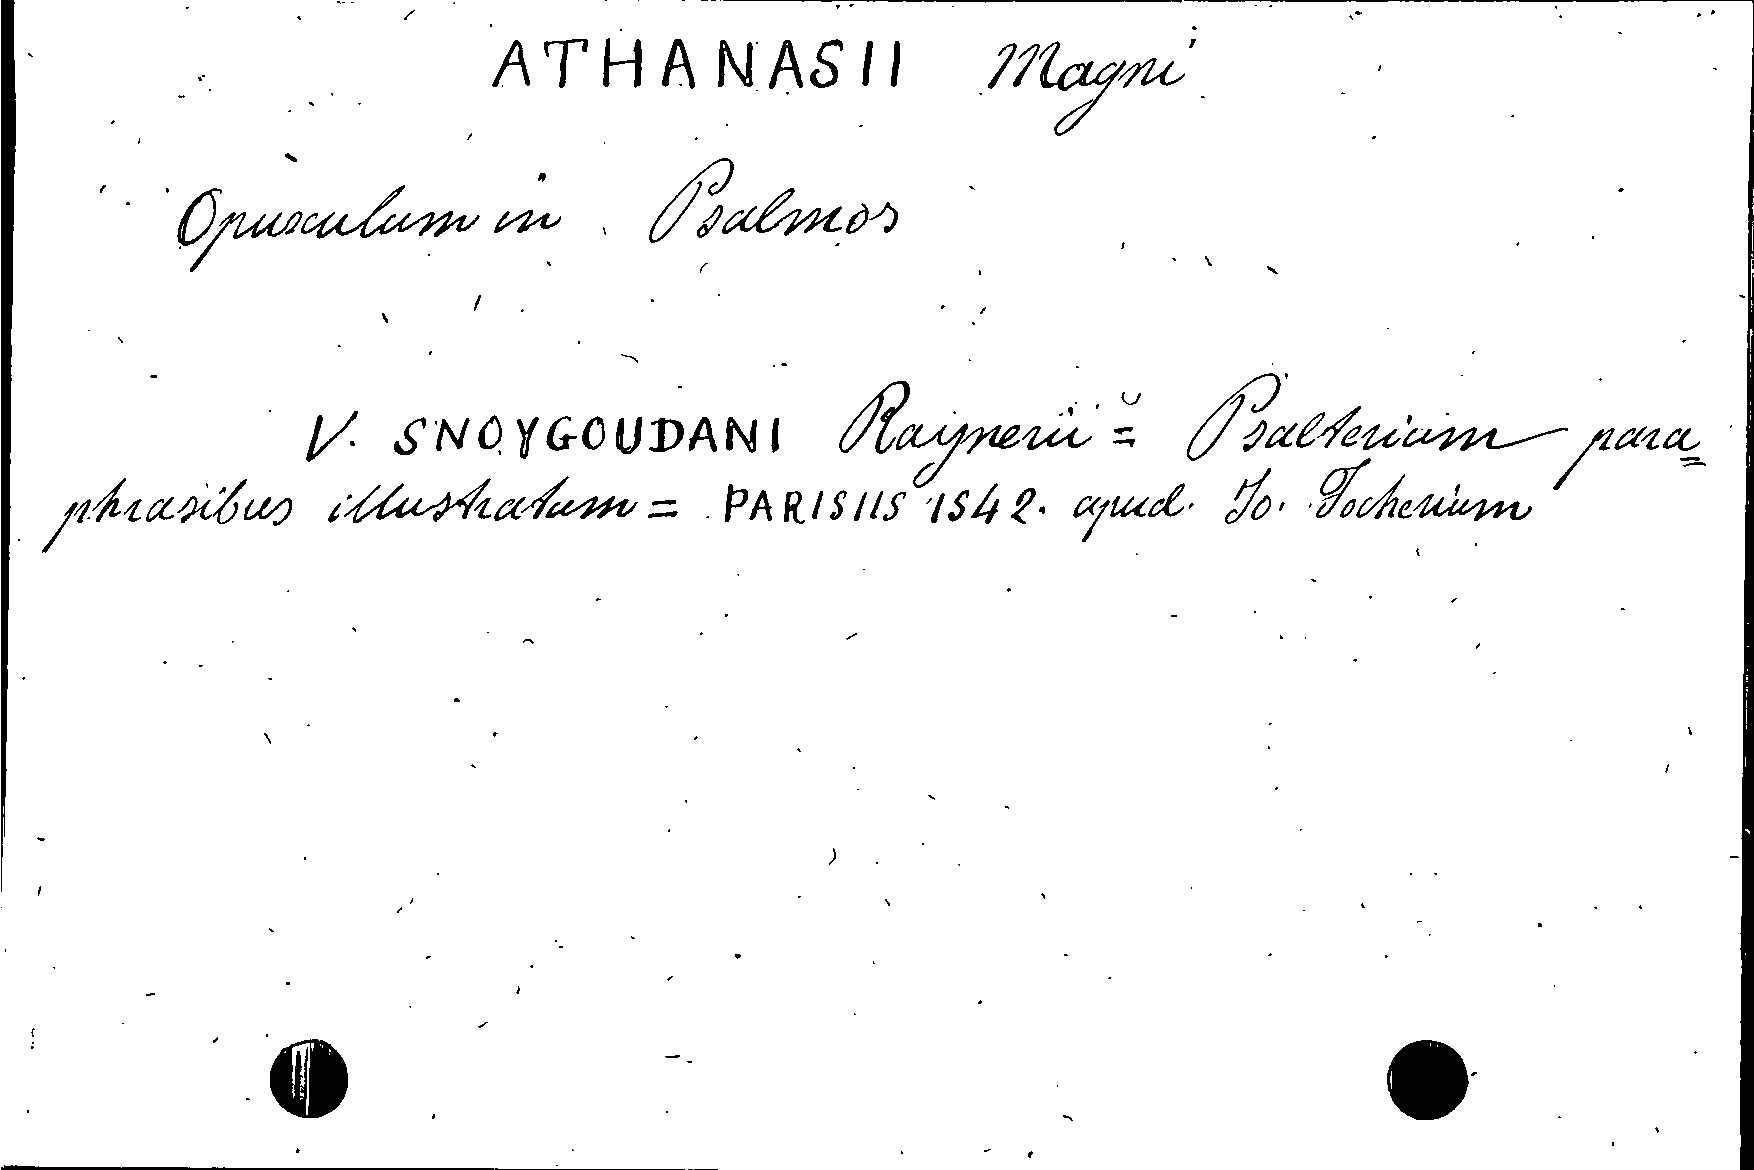 ATHANASII Magni
Opusculum in Psalmos
V. SNOYGOUDANI Raynerii = Psalterium para=
phrasibus illustratum = PARISIIS 1542. apud. Jo. Focherium